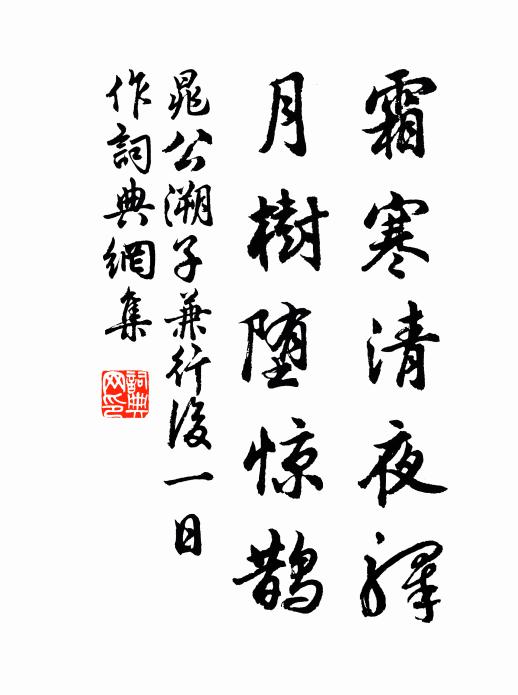 霜寒清夜驛
月樹堕惊鵲
晁公溯子兼行後一日
作詞典網集
詞典网印